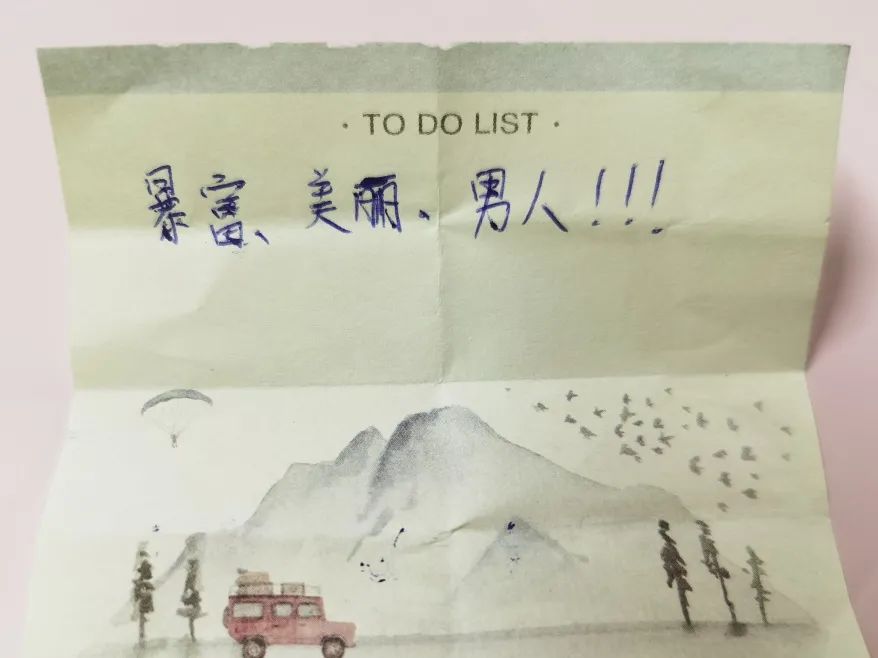 · TO DO LIST ·
暴富、美丽、男人!!!